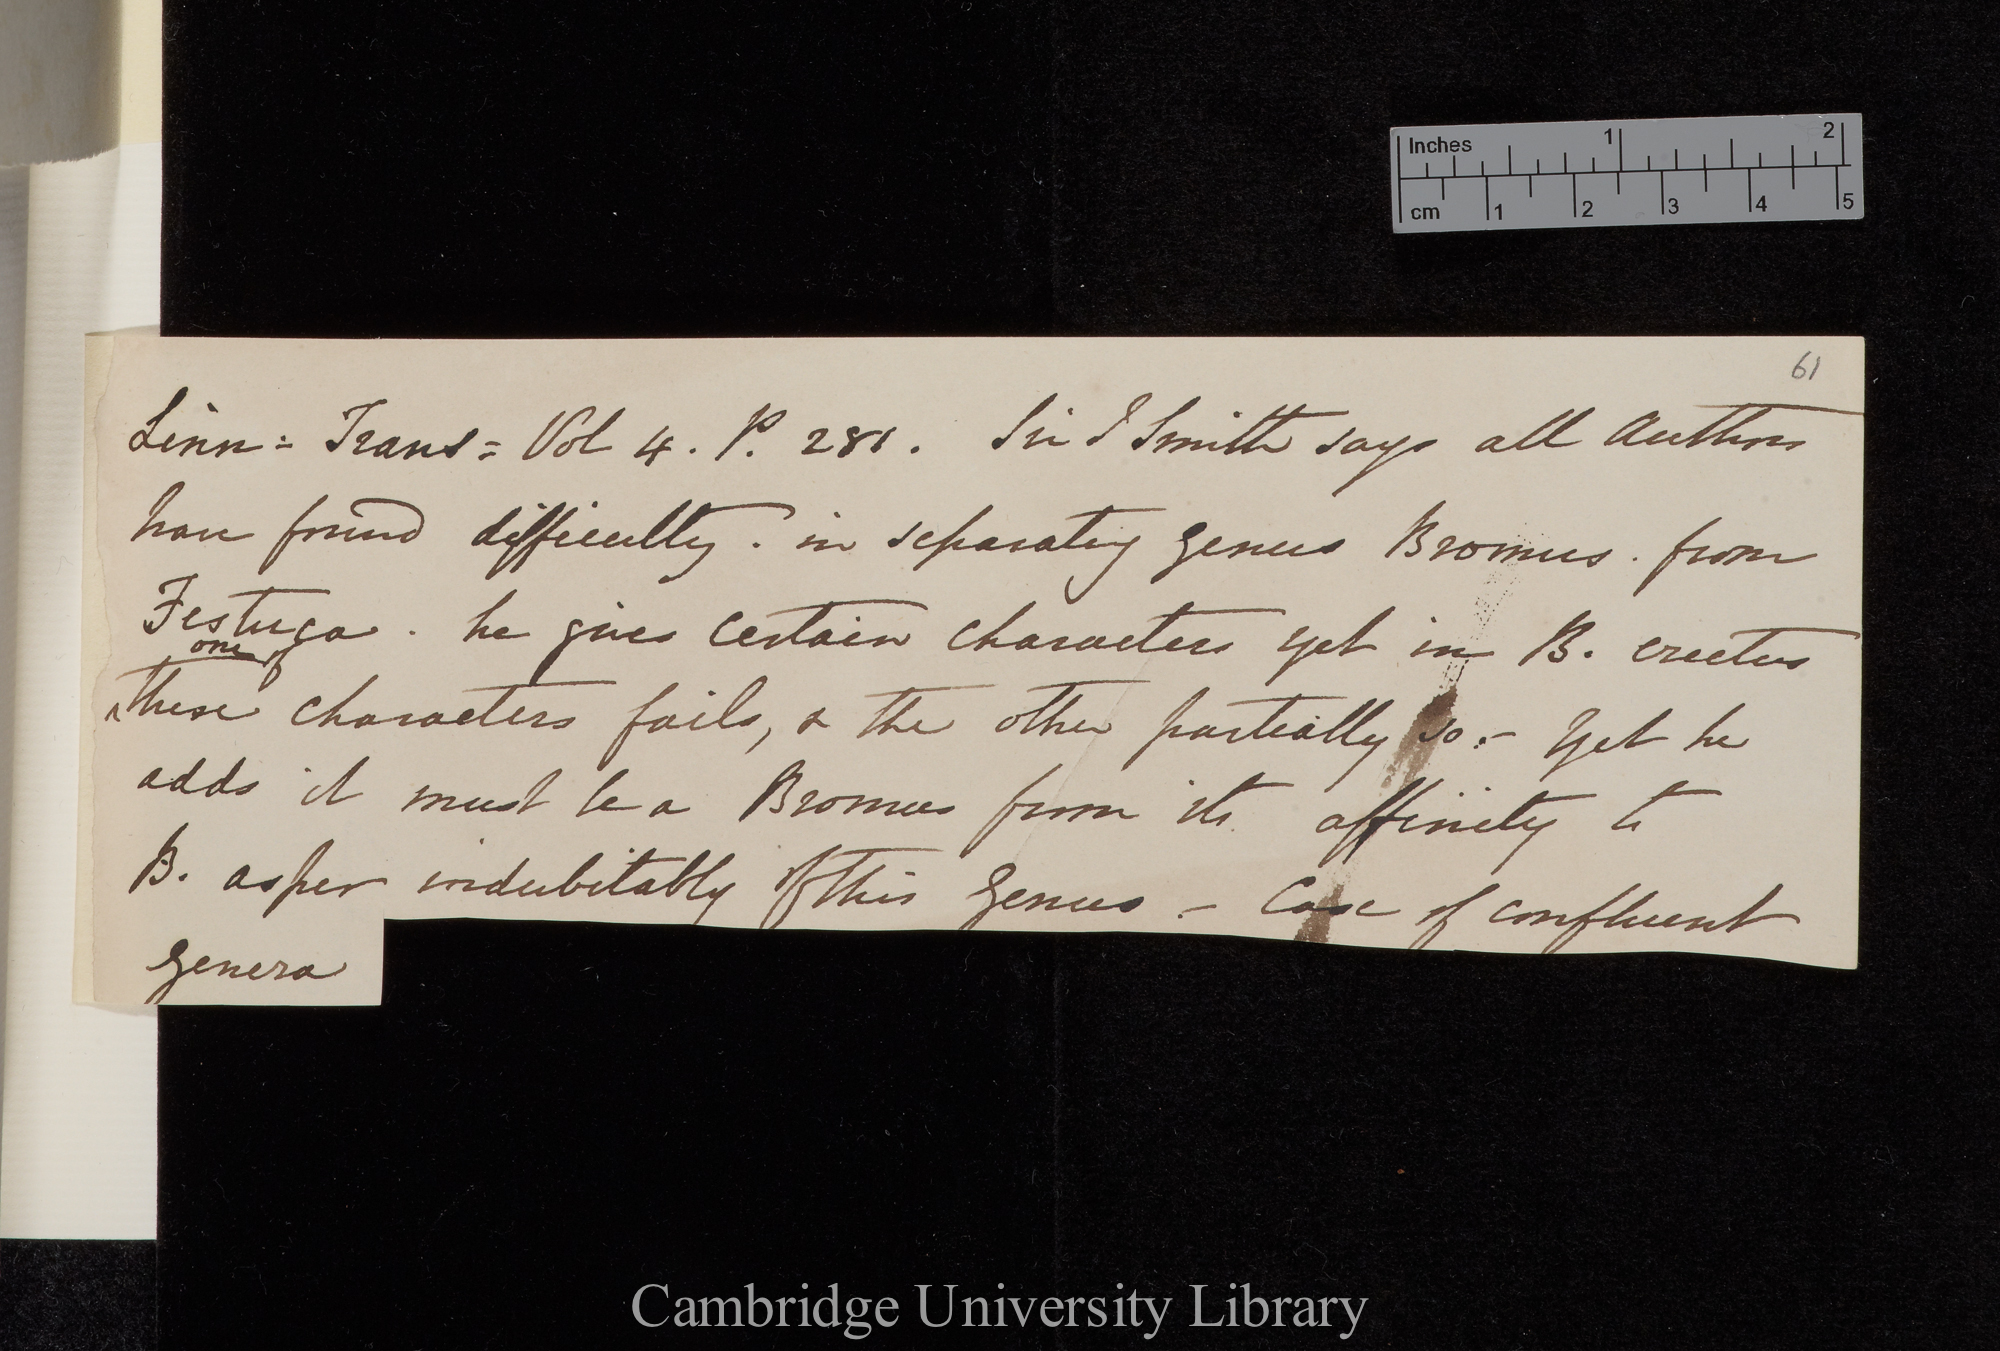 Inches 1 2
cm 1 2 3 4 5
61
Linn: Trans: Vol 4. P. 281. Sir J Smith says all Authors
have found difficulty. in separating genus Bromus. from
Festuga. he gives certain characters yet in B. erectus
one of
^these characters fails, & the other partially so.- Yet he
adds it must be a Bromus from its affinity to
B. asper indubitably of this genus - Case of confluent
genera
Cambridge University Library